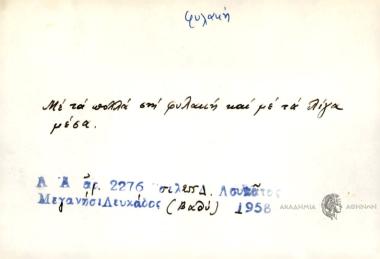 φυλακή
Μέ τά πολλά στή φυλακή καί μέ τά λίγα
μέσα.
Α Α ἀρ. 2276 σελ. Δ. Λουκᾶτος
Μεγανήσι Λευκάδος (Βαθύ) 1958
ΑΚΑΔΗΜΙΑ ΑΘΗΝΩΝ